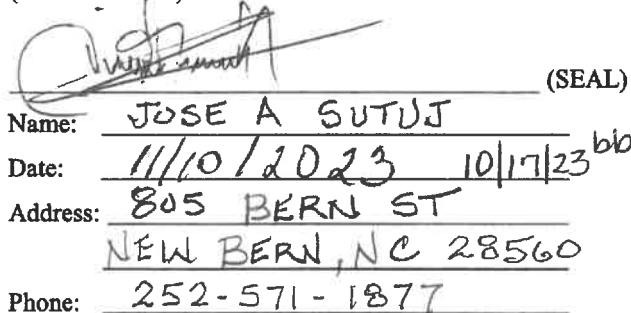 (SEAL)
Name: JOSE A SUTUJ
Date: 11/10/2023 10/17/23 bb
Address: 805 BERN ST
NEW BERN, NC 28560
Phone: 252-571-1877